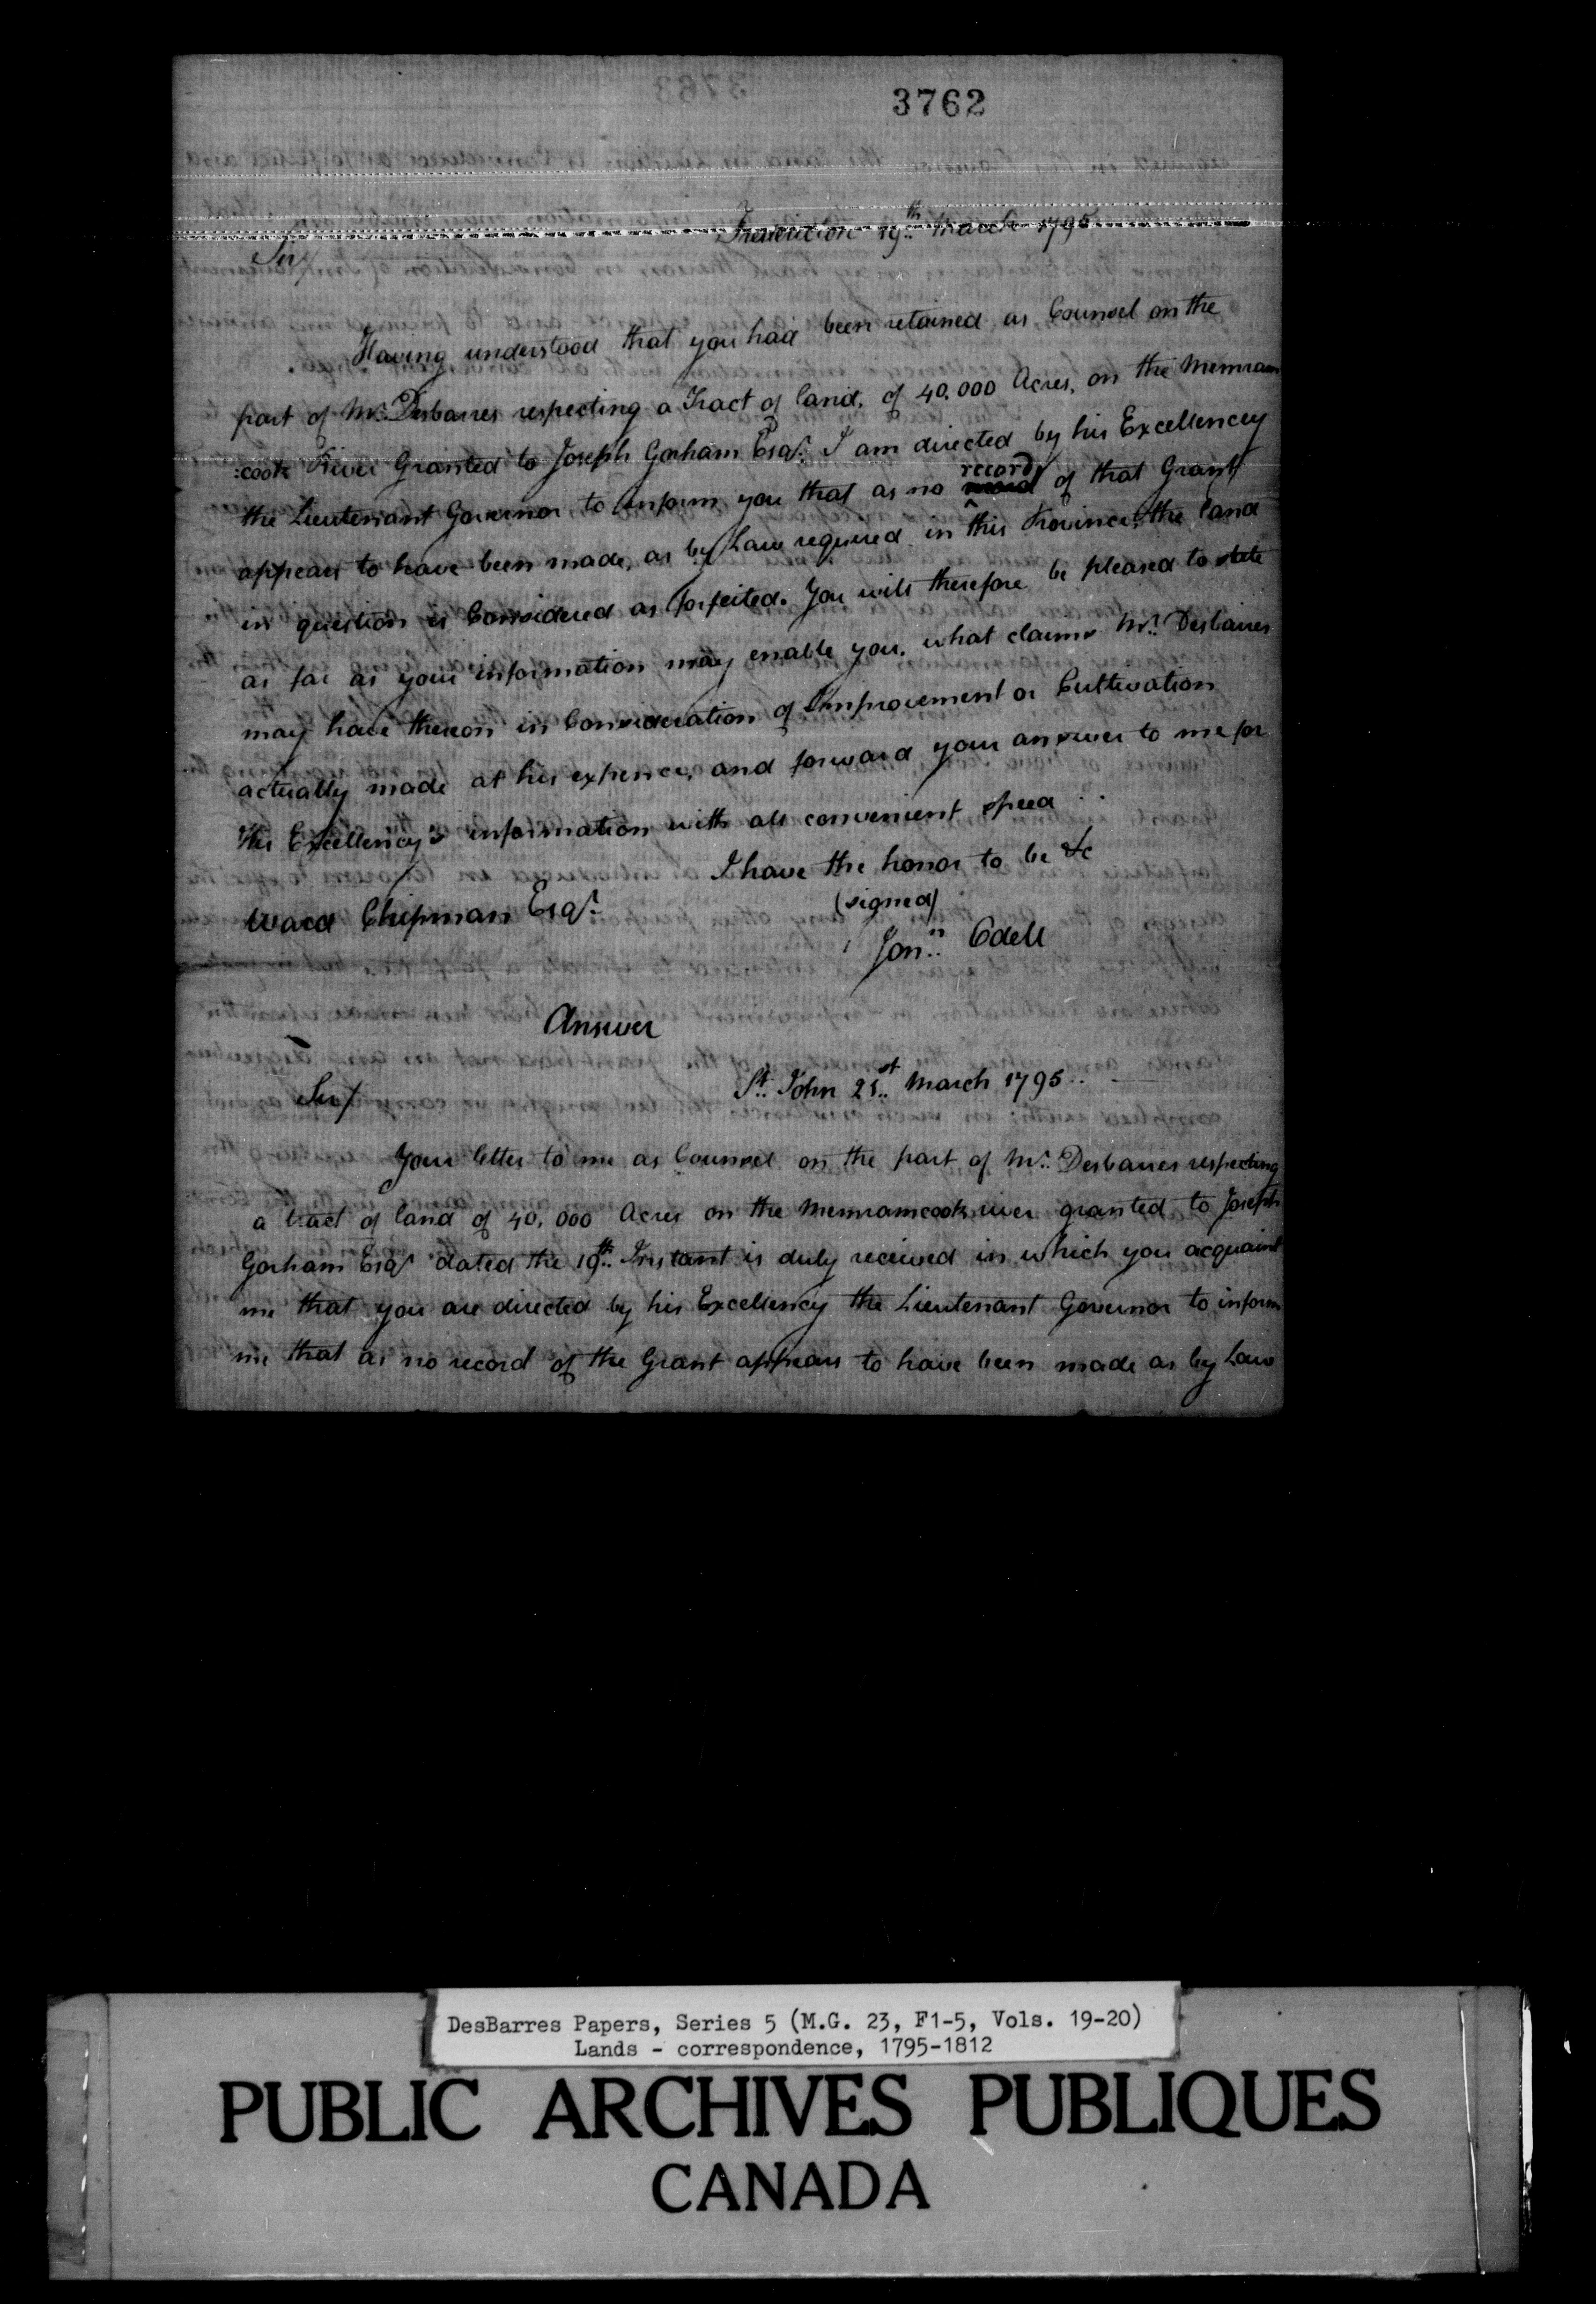 3762
Fredericton 19th March 1795
Sir/
Having understood that you had been retained as Counsel on the
part of Mr. Desbarres respecting a Tract of land, of 40,000 Acres, on the Memram
:cook River Granted to Joseph Gorham Esqr. I am directed by his Excellencey
the Lieutenant Governor to inform you that as no record of that Grant
appears to have been made, as by Law required in this Province, the land
in question is Considered as forfeited. You will therefore be pleased to state
as far as your information may enable you, what claims Mr. Desbarres
may have thereon in Consideration of Improvement or Cultivation
actually made at his expence, and forward your answer to me for
His Excellency's information with all convenient speed..
I have the honor to be &c
(signed)
Ward Chipman Esqr.
Jonn. Odell
Answer
St. John 21st March 1795..
Sir/
Your letter to me as Counsel on the part of Mr. Desbarres respecting
a tract of land of 40,000 Acres on the Memramcook river granted to Joseph
Gorham Esqr dated the 19th Instant is duly received in which you acquaint
me that you are directed by his Excellency the Lieutenant Governor to inform
me that as no record of the Grant appears to have been made as by Law
DesBarres Papers, Series 5 (M.G. 23, F1-5, Vols. 19-20)
Lands - correspondence, 1795-1812
PUBLIC ARCHIVES PUBLIQUES
CANADA